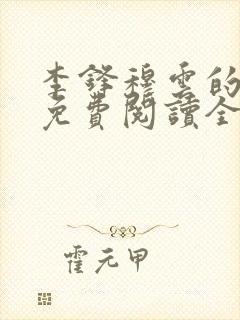 李鋒穆雲的
免費閱讀全
霍元甲